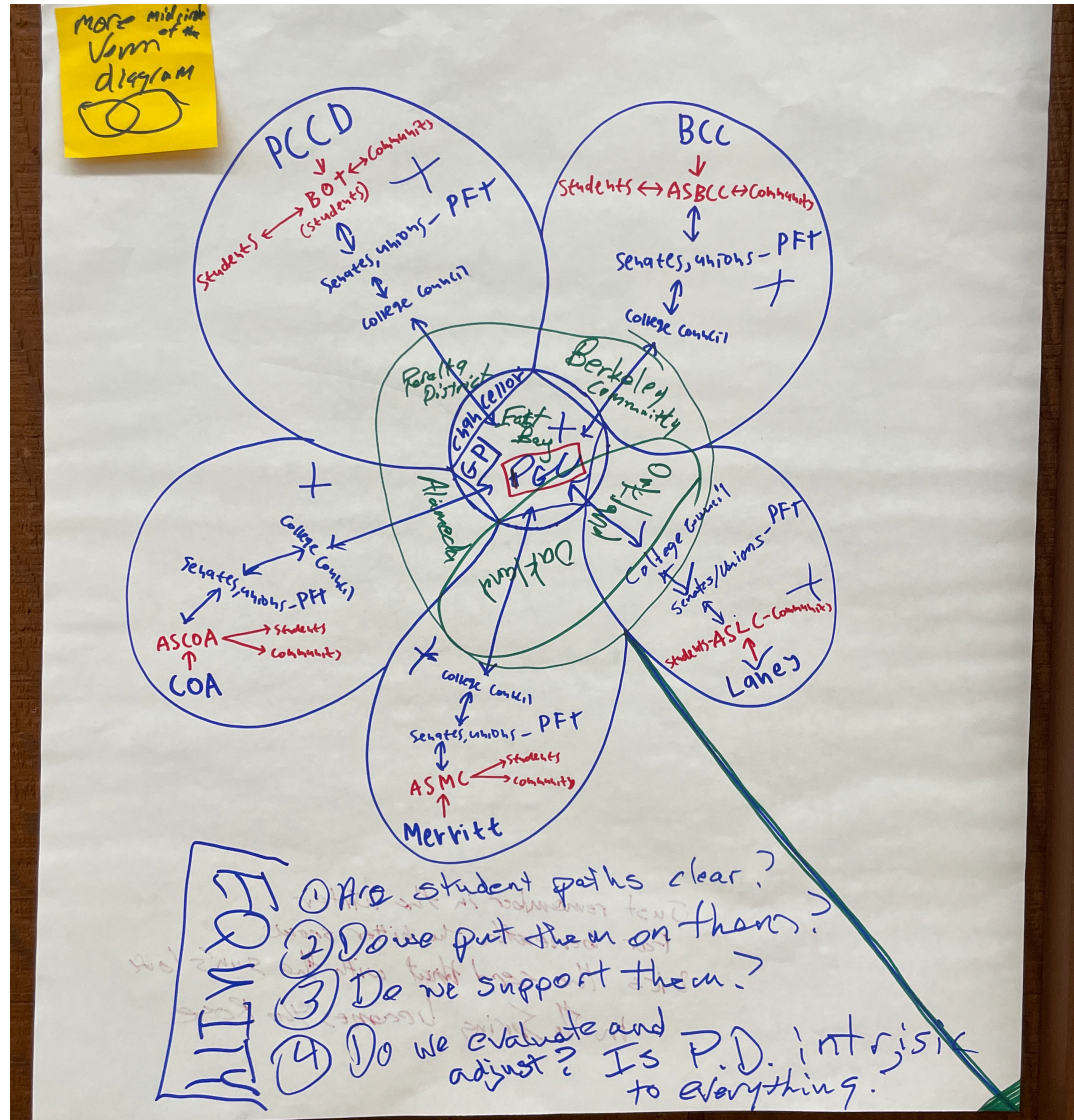 more midcircle
of the
Venn
diagram
PCCD
BOT ↔ Community
(students)
Students
Senates, unions - PFT
College Council
BCC
Students ↔ ASBCC ↔ Community
Senates, unions - PFT
College Council
Peralta
District
Berkeley
Community
Chancellor
East
Bay
GP
PGC
Alameda
Oakland
Oakland
College Council
Senates, unions - PFT
ASCOA
Students
Community
COA
College Council
Senates/Unions - PFT
Students - ASLC - Community
Laney
College Council
Senates, unions - PFT
ASMC
Students
Community
Merritt
EQUITY
① Are student paths clear?
② Do we put them on them?
③ Do we support them?
④ Do we evaluate and
adjust? Is P.D. intrisic
to everything?